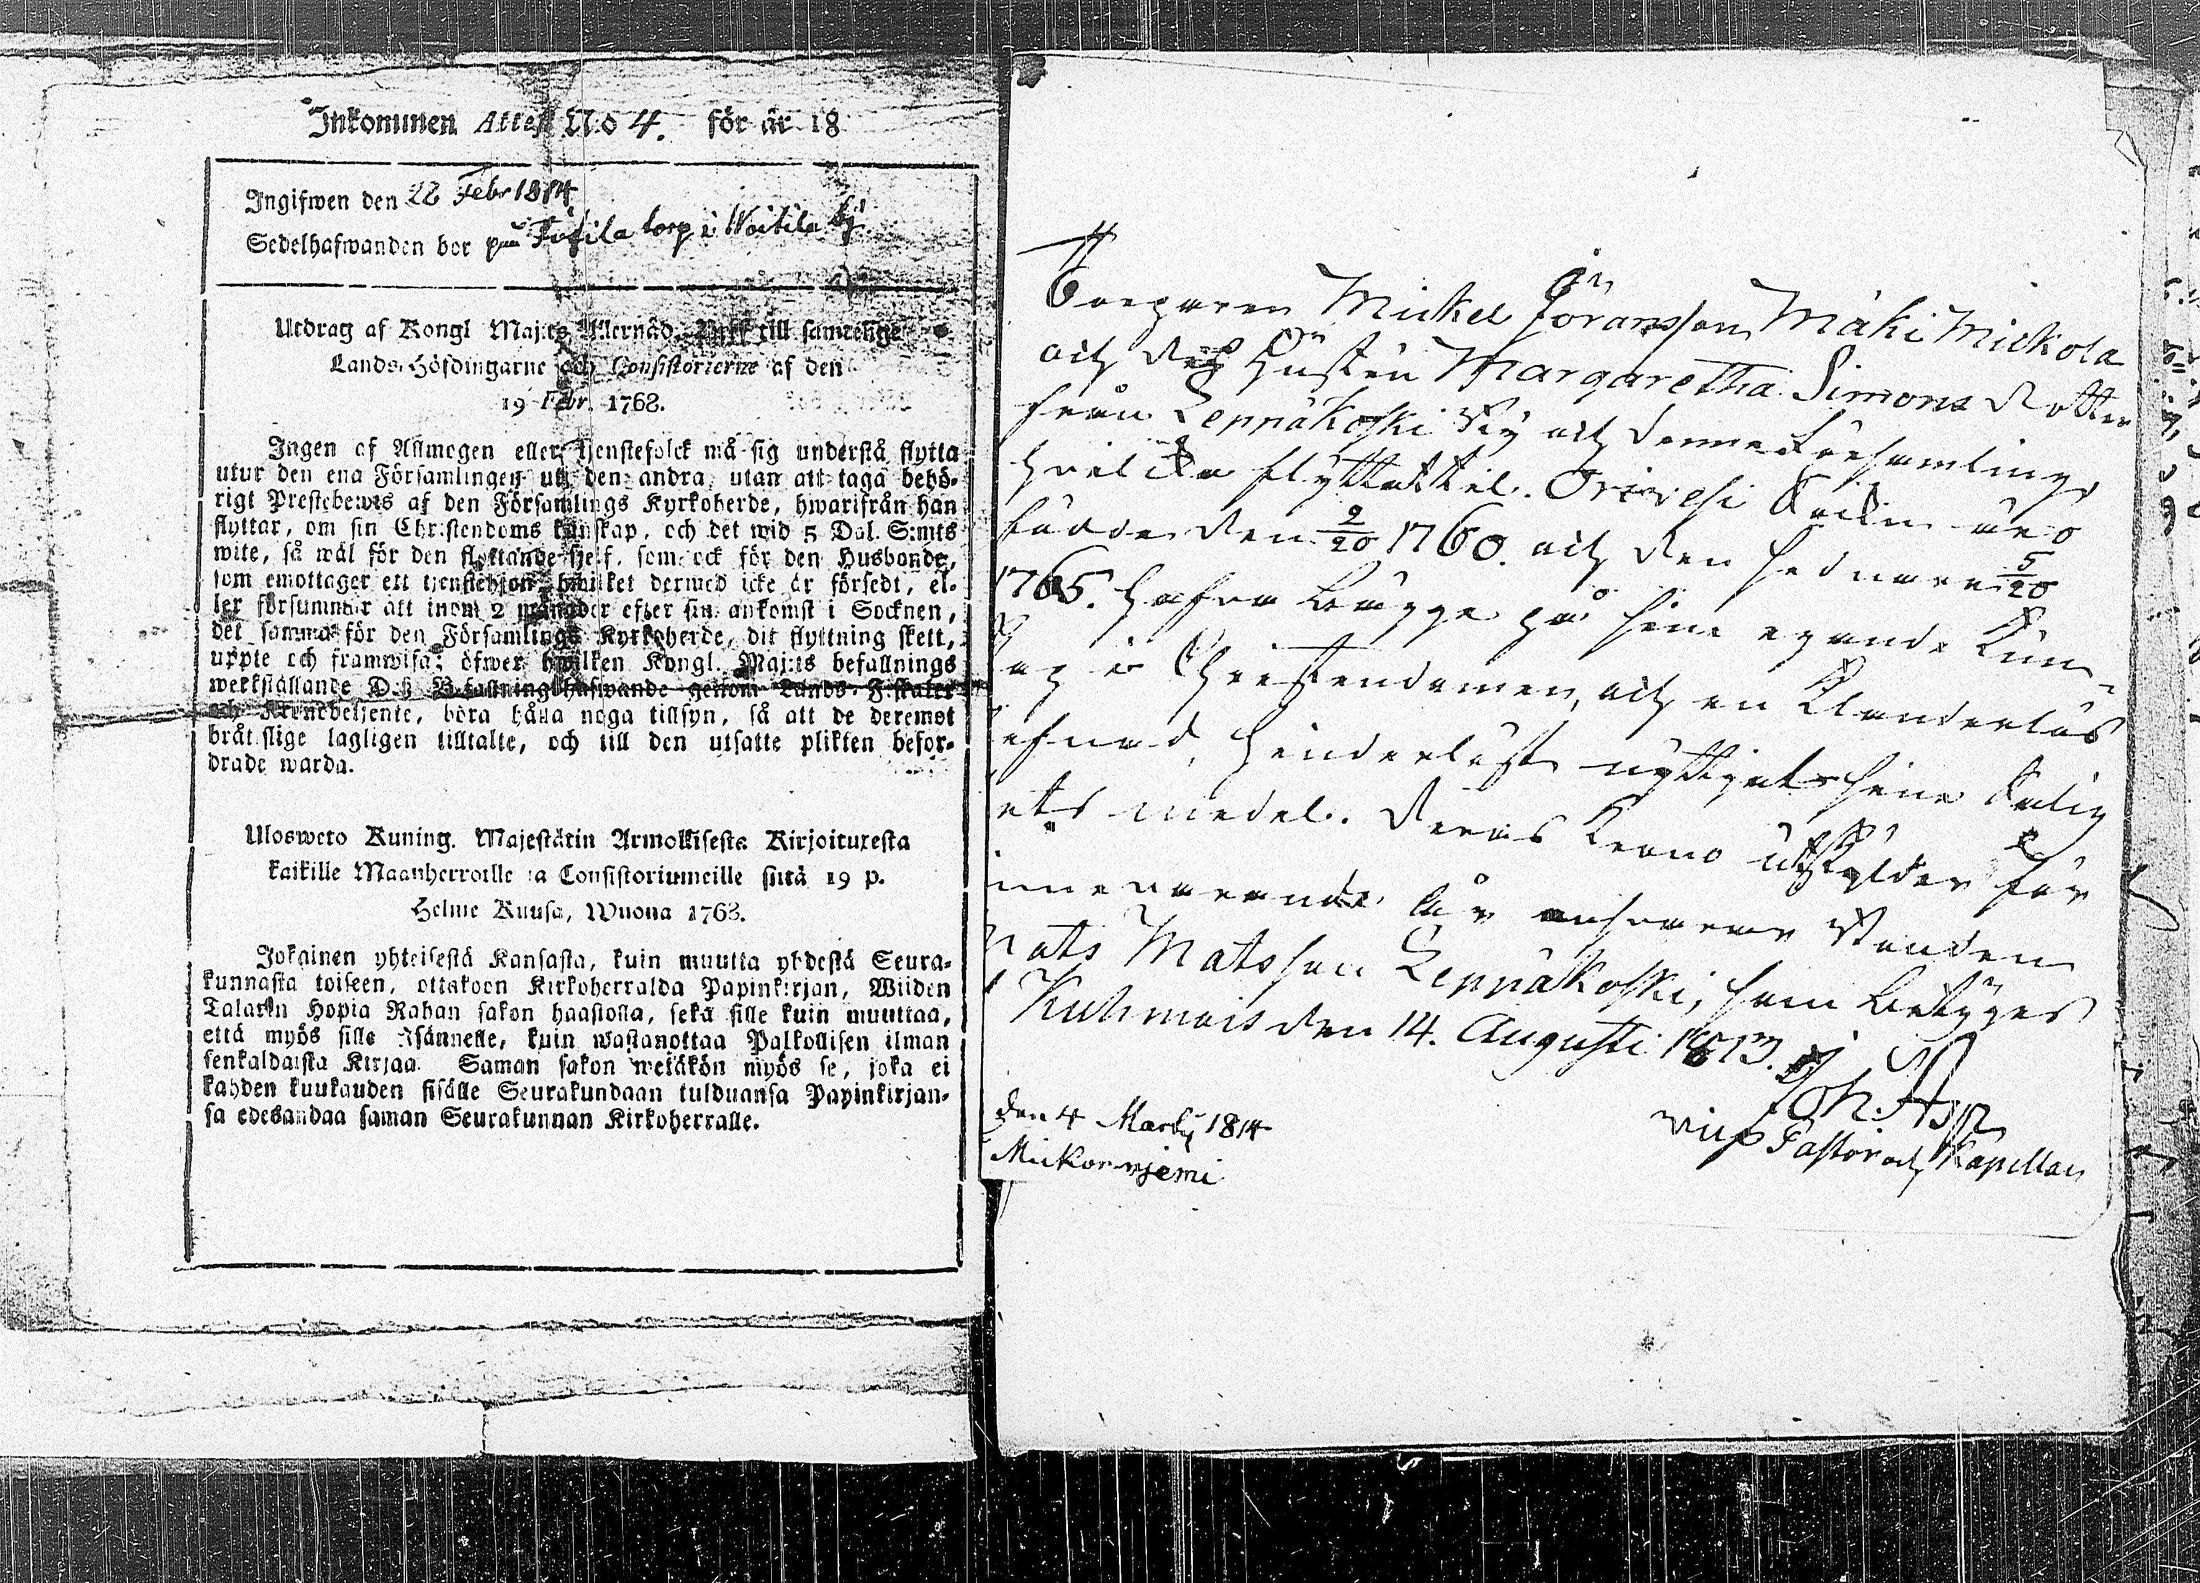 Inkommen Attest No 4. för år 18
Ingifwen den 22 Febr 1814
Sedelhafwanden bor på torp i Woitila by
Utdrag af Kongl Maj:ts Allernåd. Bref till samtelige
Lands-Höfdingarne och Consistorierne af den
19 Febr. 1768.
Ingen af Allmogen eller tjenstefolck må sig understå flytta
utur den ena Församlingen uti den andra, utan att taga behö-
rigt Prestebewis af den Församlings Kyrkoherde, hwarifrån han
flyttar, om sin Christendoms kunskap, och det wid 5 Dal. S:mts
wite, så wäl för den flyttande sjelf, som ock för den Husbonde,
som emottager ett tjenstehjon, hwilket dermed icke är försedt, el-
ler försummar att inom 2 månader efter sin ankomst i Socknen,
det samma för den Församlings Kyrkoherde, dit flyttning skett,
uppte och framwisa; öfwer hwilken Kongl. Maj:ts befallnings
werkställande D. Befallningshafwande genom Lands-Fiskaler
och Kronobetjente, böra hålla noga tillsyn, så att de deremot
bråtslige lagligen tilltalte, och till den utsatte plikten befor-
drade warda.
Ulosweto Kuning. Majestätin Armollisesta Kirjoituxesta
kaikille Maanherroille ja Consistoriumeille siitä 19 p.
Helme Kuusa, Wuona 1768.
Jokainen yhteisestä Kansasta, kuin muutta yhdestä Seura-
kunnasta toiseen, ottakoon Kirkoherralda Papinkirjan, Wiiden
Talarin Hopia Rahan sakon haastolla, sekä sille kuin muuttaa,
että myös sille Isännelle, kuin wastanottaa Palkollisen ilman
senkaldaista Kirjaa. Saman sakon wetäkön myös se, joka ei
kahden kuukauden sisälle Seurakundaan tulduansa Papinkirjan-
sa edesandaa saman Seurakunnan Kirkoherralle.
Torparen Mickel Jöransson Mäki Mickola
och dess Hustru Margaretha Simons Dotter
från Leppäkoski By och denne Församling,
hvilcka flyttat til Orivesi Sockn äro
födde den 9/20 1760. och den sednare 5/20
1765. hafva bägge på sine egande Kun-
skap i Christendomen, och en Klanderlös
lefnad, hinderlöst nyttjat sine Salig
ets medel. Deras Krono utskylder för
innevarande år ansvarar Bonden
Mats Matsson Leppäkoski, som betygas
Kuhmois den 14. Augusti 1813.
Joh: Asp
vice Pastor och Kapellan
den 4 Martij 1814